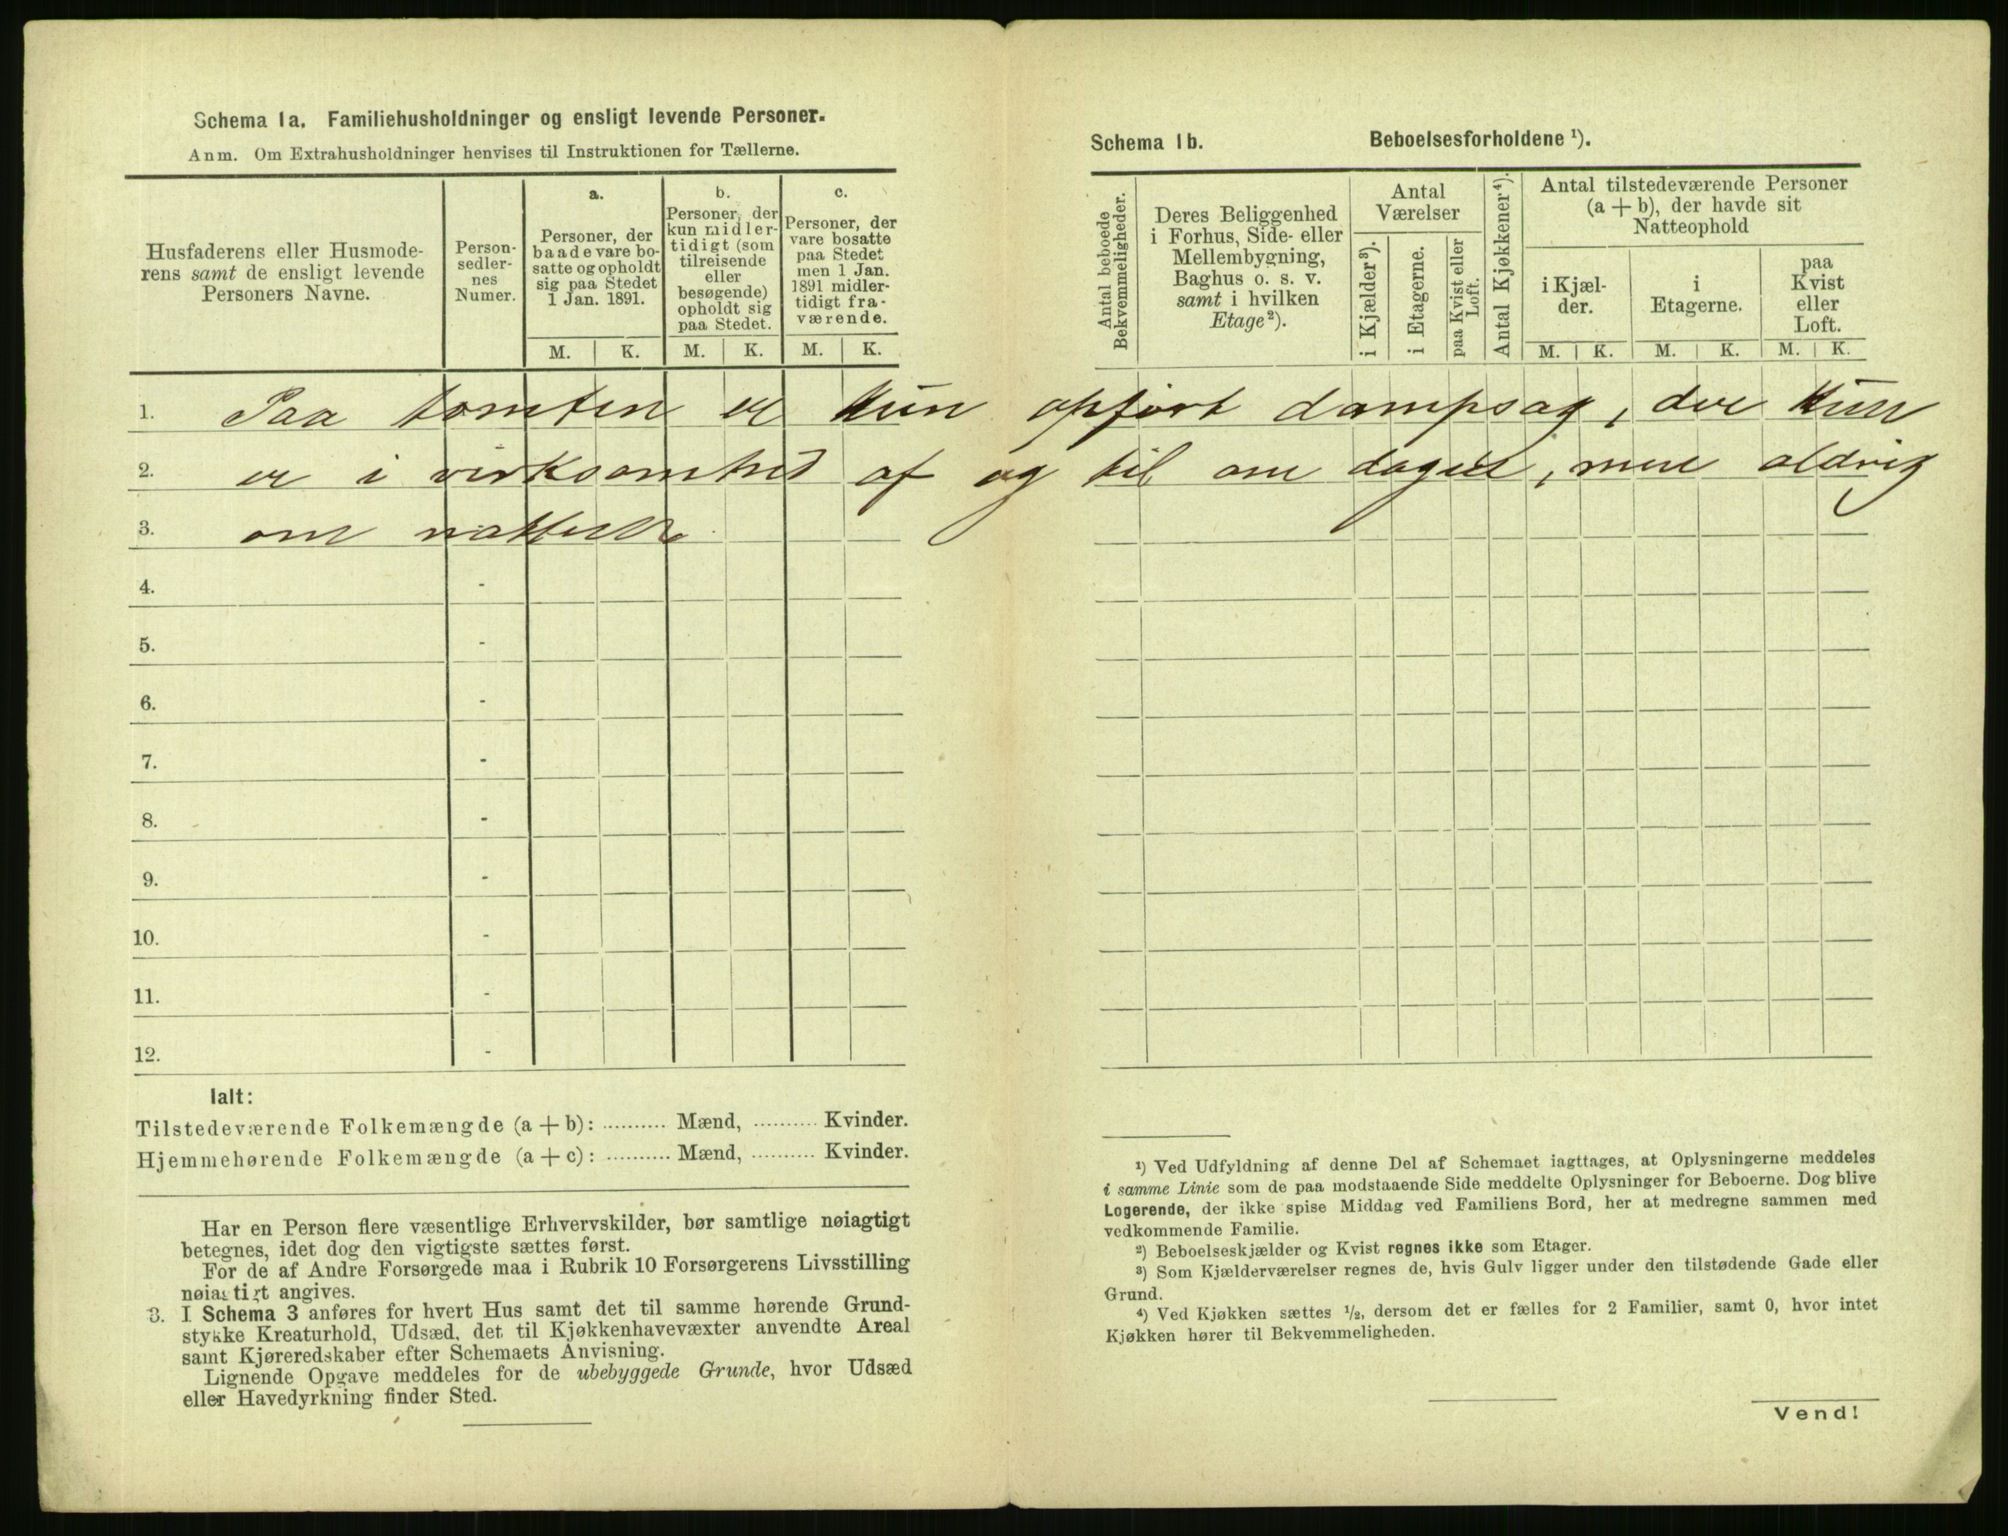 Schema 1a. Familiehusholdninger og ensligt levende Personer.
Anm. Om Extrahusholdninger henvises til Instruktionen for Tællerne.
Husfaderens eller Husmode-
rens samt de ensligt levende
Personers Navne.
Person-
sedler-
nes
Numer.
a.
Personer, der
baade vare bo-
satte og opholdt
sig paa Stedet
1 Jan. 1891.
M. K.
b.
Personer, der
kun midler-
tidigt (som
tilreisende
eller
besøgende)
opholdt sig
paa Stedet.
M. K.
c.
Personer, der
vare bosatte
paa Stedet
men 1 Jan.
1891 midler-
tidigt fra-
værende.
M. K.
Schema 1b. Beboelsesforholdene ¹).
Antal beboede
Bekvemmeligheder.
Deres Beliggenhed
i Forhus, Side- eller
Mellembygning,
Baghus o. s. v.
samt i hvilken
Etage²).
Antal
Værelser
i Kjælder³).
i Etagerne.
paa Kvist eller
Loft.
Antal Kjøkkener⁴).
Antal tilstedeværende Personer
(a + b), der havde sit
Natteophold
i Kjæl-
der.
i
Etagerne.
paa
Kvist
eller
Loft.
M. K. M. K. M. K.
1. Paa tomten er kun opført dampsag, der kun
2. er i virksomhed af og til om dagen, men aldrig
3. om natten
4. -
5. -
6. -
7. -
8. -
9. -
10. -
11. -
12. -
Ialt:
Tilstedeværende Folkemængde (a + b): .......... Mænd, .......... Kvinder.
Hjemmehørende Folkemængde (a + c): .......... Mænd, .......... Kvinder.
Har en Person flere væsentlige Erhvervskilder, bør samtlige nøiagtigt
betegnes, idet dog den vigtigste sættes først.
For de af Andre Forsørgede maa i Rubrik 10 Forsørgerens Livsstilling
nøiagtigt angives.
3. I Schema 3 anføres for hvert Hus samt det til samme hørende Grund-
stykke Kreaturhold, Udsæd, det til Kjøkkenhavevæxter anvendte Areal
samt Kjøreredskaber efter Schemaets Anvisning.
Lignende Opgave meddeles for de ubebyggede Grunde, hvor Udsæd
eller Havedyrkning finder Sted.
¹) Ved Udfyldning af denne Del af Schemaet iagttages, at Oplysningerne meddeles
i samme Linie som de paa modstaaende Side meddelte Oplysninger for Beboerne. Dog blive
Logerende, der ikke spise Middag ved Familiens Bord, her at medregne sammen med
vedkommende Familie.
²) Beboelseskjælder og Kvist regnes ikke som Etager.
³) Som Kjælderværelser regnes de, hvis Gulv ligger under den tilstødende Gade eller
Grund.
⁴) Ved Kjøkken sættes ¹/₂, dersom det er fælles for 2 Familier, samt 0, hvor intet
Kjøkken hører til Bekvemmeligheden.
Vend!